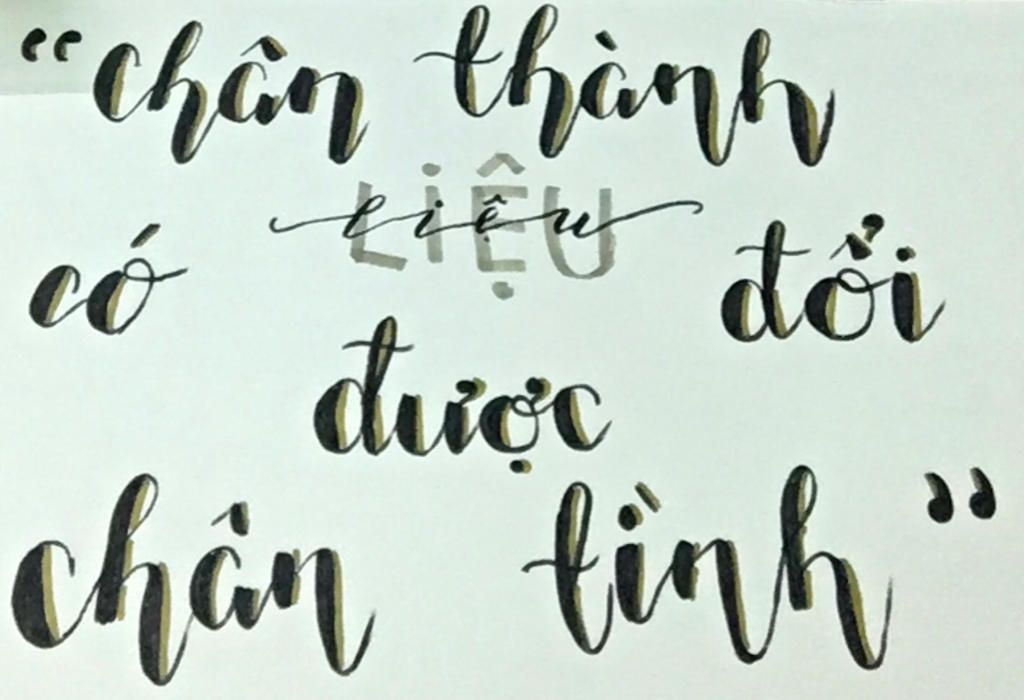 “chân thành
LIỆU
liệu
có đổi
được
chân tình”